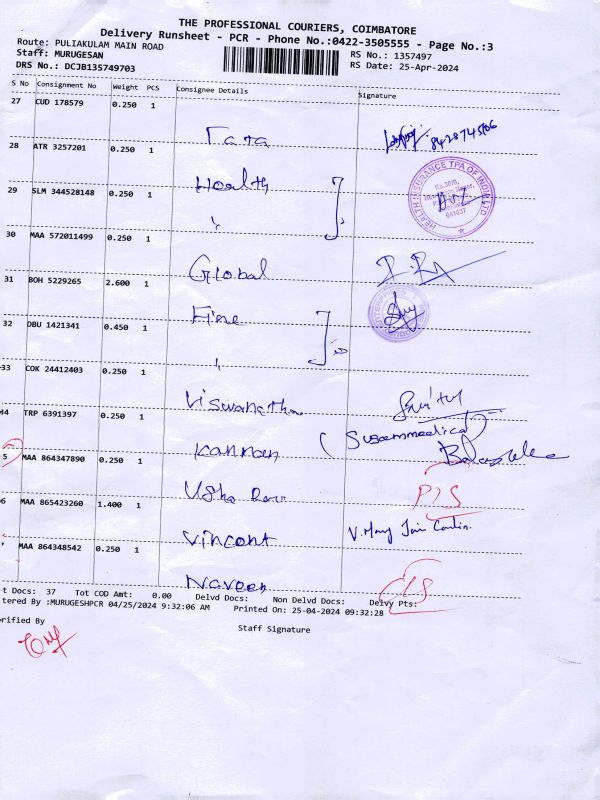 THE PROFESSIONAL COURIERS, COIMBATORE
Delivery Runsheet - PCR - Phone No.:0422-3505555 - Page No.:3
Route: PULIAKULAM MAIN ROAD
Staff: MURUGESAN
RS No.: 1357497
DRS No.: DCJB135749703
RS Date: 25-Apr-2024
S No Consignment No Weight PCS Consignee Details Signature
27 CUD 178579 0.250 1
Tata 8428745106
28 ATR 3257201 0.250 1
Health HEALTH INSURANCE TPA OF INDIA LTD
641037
29 SLM 344528148 0.250 1
"
30 MAA 572011499 0.250 1
Global
31 BOH 5229265 2.600 1
Fine
32 DBU 1421341 0.450 1
"
33 COK 24412403 0.250 1
Viswanatha
34 TRP 6391397 0.250 1
Kannan
5 MAA 864347890 0.250 1
Usha Rani P/S
6 MAA 865423260 1.400 1
Vincent V. Mary
MAA 864348542 0.250 1
Naveen
t Docs: 37 Tot COD Amt: 0.00 Delvd Docs: Non Delvd Docs: Delvy Pts:
tered By :MURUGESHPCR 04/25/2024 9:32:06 AM Printed On: 25-04-2024 09:32:28
rified By
Staff Signature